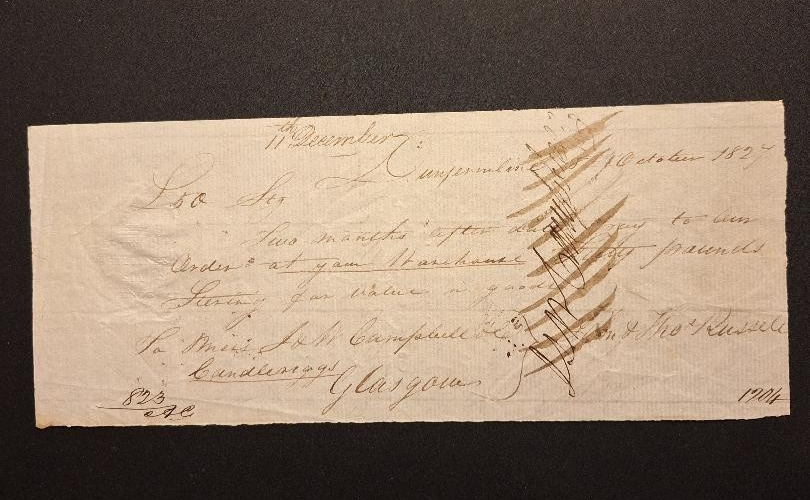 11th December
Dunfermline 8 October 1827
£50 Stg
Two months after date pay to our
Order at your Warehouse Fifty pounds
Sterling for value in goods
To Messrs J & W Campbell & Co Jn & Thos Russell
Candleriggs
Glasgow
823
1204